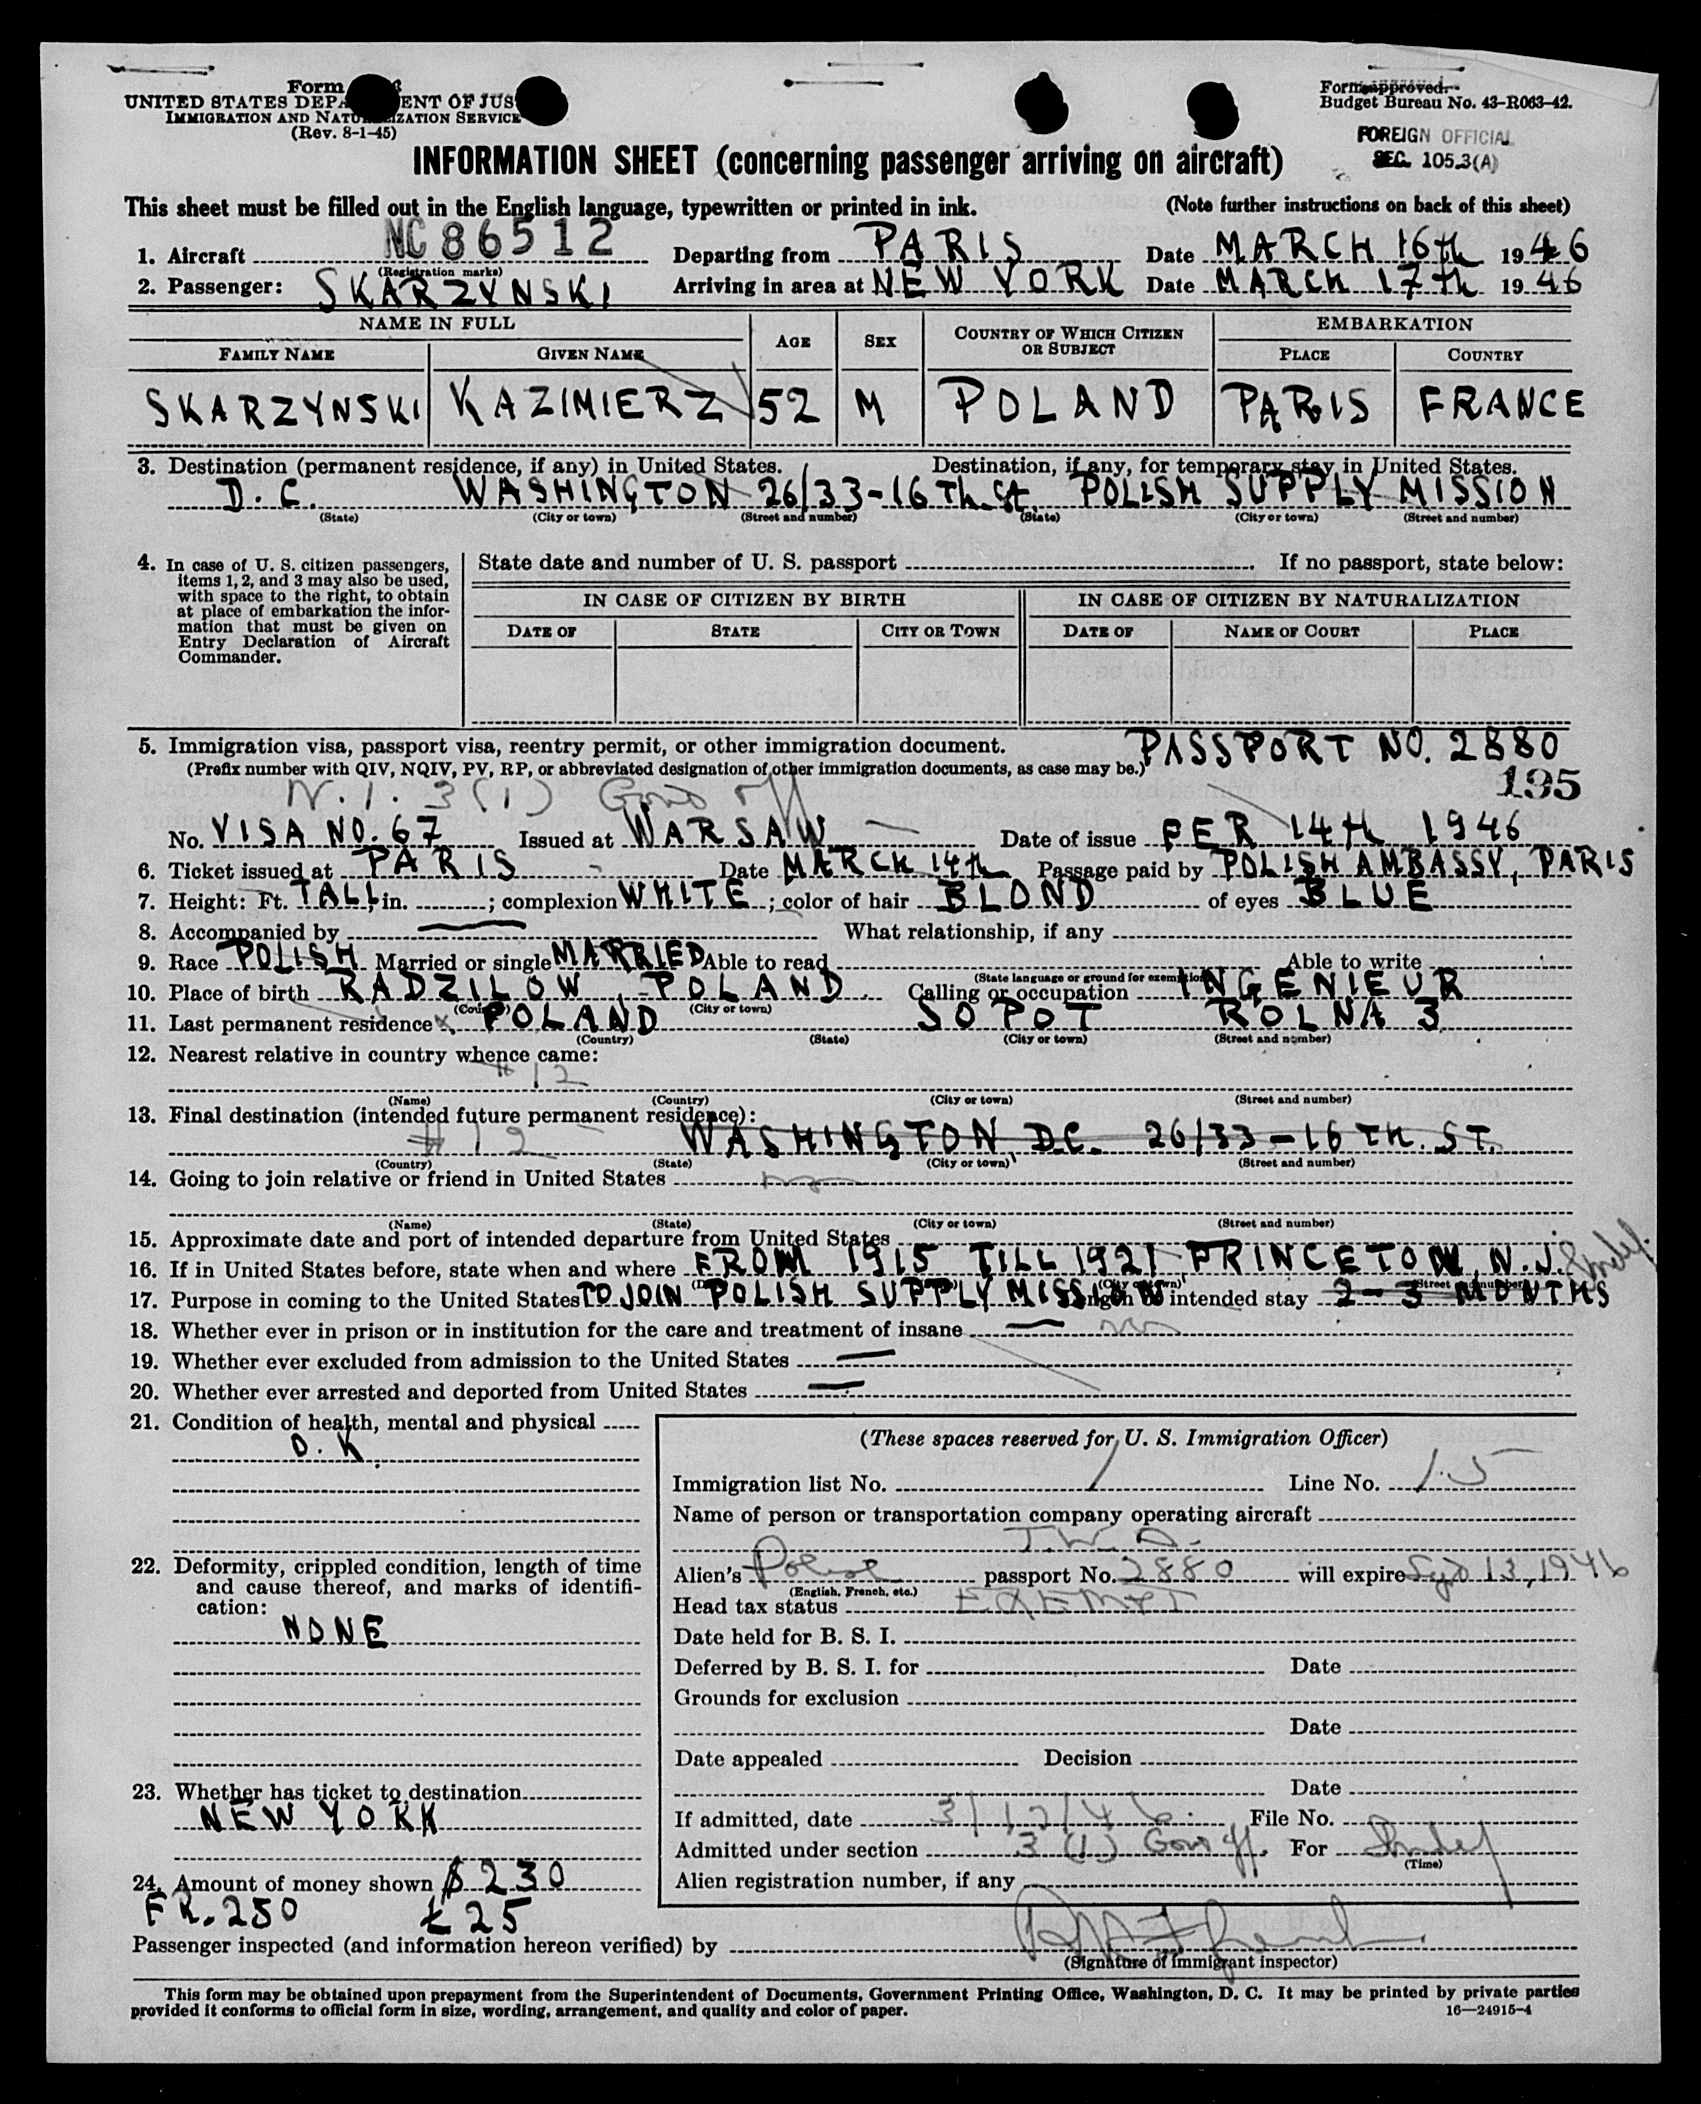 Form
UNITED STATES DEPA ENT OF JUS
IMMIGRATION AND NATU IZATION SERVICE
(Rev. 8-1-45)
Form approved.
Budget Bureau No. 43-R063-42.
FOREIGN OFFICIAL
SEC. 105.3(A)
INFORMATION SHEET (concerning passenger arriving on aircraft)
This sheet must be filled out in the English language, typewritten or printed in ink. (Note further instructions on back of this sheet)
1. Aircraft NC86512 Departing from PARIS Date MARCH 16th 1946
(Registration marks)
2. Passenger: SKARZYNSKI Arriving in area at NEW YORK Date MARCH 17th 1946
NAME IN FULL AGE SEX COUNTRY OF WHICH CITIZEN OR SUBJECT EMBARKATION
FAMILY NAME GIVEN NAME PLACE COUNTRY
SKARZYNSKI KAZIMIERZ 52 M POLAND PARIS FRANCE
3. Destination (permanent residence, if any) in United States. Destination, if any, for temporary stay in United States.
D.C. WASHINGTON 26/33-16Th St. POLISH SUPPLY MISSION
(State) (City or town) (Street and number) (State) (City or town) (Street and number)
4. In case of U. S. citizen passengers,
items 1, 2, and 3 may also be used,
with space to the right, to obtain
at place of embarkation the infor-
mation that must be given on
Entry Declaration of Aircraft
Commander.
State date and number of U. S. passport If no passport, state below:
IN CASE OF CITIZEN BY BIRTH IN CASE OF CITIZEN BY NATURALIZATION
DATE OF STATE CITY OR TOWN DATE OF NAME OF COURT PLACE
5. Immigration visa, passport visa, reentry permit, or other immigration document. PASSPORT NO. 2880
(Prefix number with QIV, NQIV, PV, RP, or abbreviated designation of other immigration documents, as case may be.)
195
N.I. 3(1) Gov off
No. VISA NO. 67 Issued at WARSAW Date of issue FER 14th 1946
6. Ticket issued at PARIS Date MARCH 14th Passage paid by POLISH AMBASSY, PARIS
7. Height: Ft. TALL, in. ; complexion WHITE ; color of hair BLOND of eyes BLUE
8. Accompanied by — What relationship, if any
9. Race POLISH Married or single MARRIED Able to read Able to write
(State language or ground for exemption)
10. Place of birth RADZILOW, POLAND. Calling or occupation INGENIEUR
(Country) (City or town)
11. Last permanent residence x. POLAND SOPOT ROLNA 3
(Country) (State) (City or town) (Street and number)
12. Nearest relative in country whence came:
# 12
(Name) (Country) (City or town) (Street and number)
13. Final destination (intended future permanent residence):
# 12 WASHINGTON D.C. 26/33-16 TH. ST.
(Country) (State) (City or town) (Street and number)
14. Going to join relative or friend in United States no
(Name) (State) (City or town) (Street and number)
15. Approximate date and port of intended departure from United States
16. If in United States before, state when and where FROM 1915 TILL 1921 PRINCETOWN, N.J.
17. Purpose in coming to the United States TO JOIN POLISH SUPPLY MISSION Length of intended stay 2-3 MONTHS
18. Whether ever in prison or in institution for the care and treatment of insane — no
19. Whether ever excluded from admission to the United States —
20. Whether ever arrested and deported from United States —
21. Condition of health, mental and physical
O.K.
22. Deformity, crippled condition, length of time
and cause thereof, and marks of identifi-
cation:
NONE
23. Whether has ticket to destination
NEW YORK
24. Amount of money shown $ 230
FR. 250 £ 25
(These spaces reserved for U. S. Immigration Officer)
Immigration list No. 1 Line No. 15
Name of person or transportation company operating aircraft
T.W.A.
Alien's Polish passport No. 2880 will expire Sept 13, 1946
(English, French, etc.)
Head tax status EXEMPT
Date held for B. S. I.
Deferred by B. S. I. for Date
Grounds for exclusion
Date
Date appealed Decision
Date
If admitted, date 3/17/46 File No.
Admitted under section 3 (1) Gov off. For Indef
(Time)
Alien registration number, if any
Passenger inspected (and information hereon verified) by
(Signature of immigrant inspector)
This form may be obtained upon prepayment from the Superintendent of Documents, Government Printing Office, Washington, D. C. It may be printed by private parties
provided it conforms to official form in size, wording, arrangement, and quality and color of paper. 16—24915-4